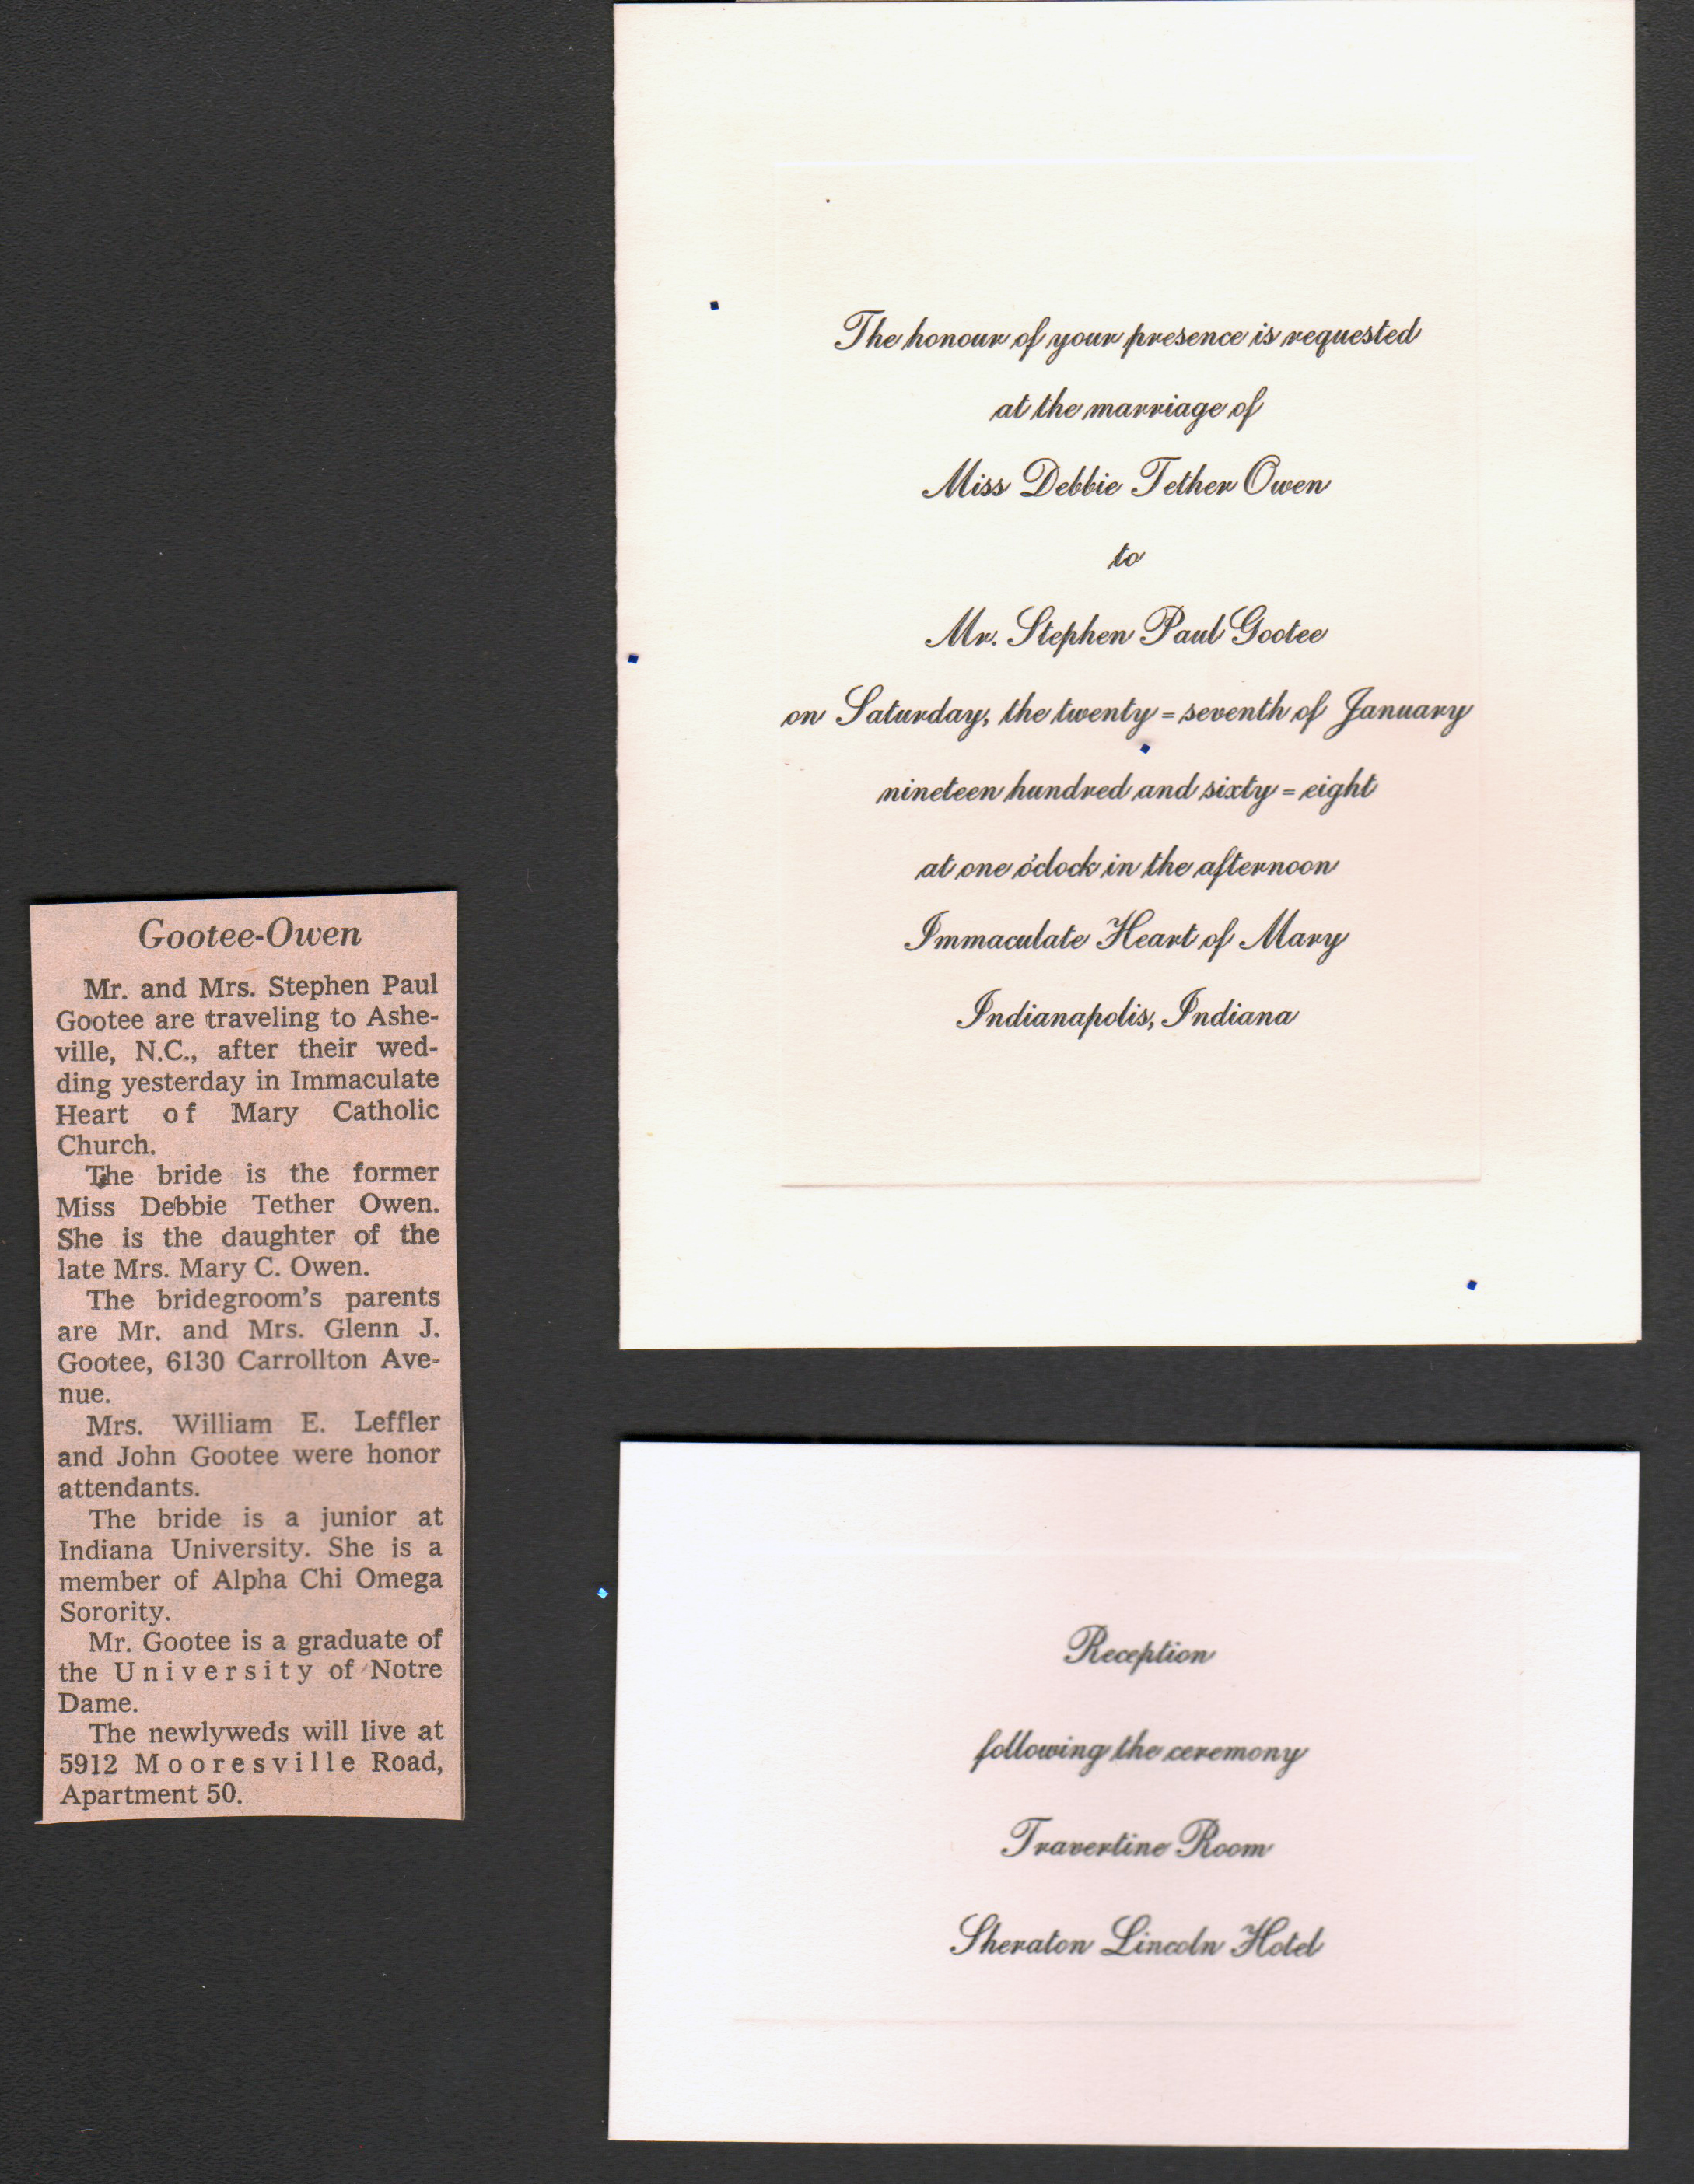 The honour of your presence is requested
at the marriage of
Miss Debbie Tether Owen
to
Mr. Stephen Paul Gootee
on Saturday, the twenty=seventh of January
nineteen hundred and sixty=eight
at one o'clock in the afternoon
Immaculate Heart of Mary
Indianapolis, Indiana
Gootee-Owen
Mr. and Mrs. Stephen Paul
Gootee are traveling to Ashe-
ville, N.C., after their wed-
ding yesterday in Immaculate
Heart of Mary Catholic
Church.
The bride is the former
Miss Debbie Tether Owen.
She is the daughter of the
late Mrs. Mary C. Owen.
The bridegroom's parents
are Mr. and Mrs. Glenn J.
Gootee, 6130 Carrollton Ave-
nue.
Mrs. William E. Leffler
and John Gootee were honor
attendants.
The bride is a junior at
Indiana University. She is a
member of Alpha Chi Omega
Sorority.
Mr. Gootee is a graduate of
the University of Notre
Dame.
The newlyweds will live at
5912 Mooresville Road,
Apartment 50.
Reception
following the ceremony
Travertine Room
Sheraton Lincoln Hotel